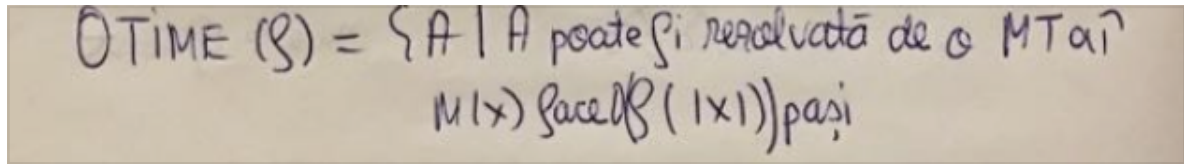 DTIME (f) = { A | A poate fi rezolvată de o MT aî
M(x) face O(f(|x|)) pași